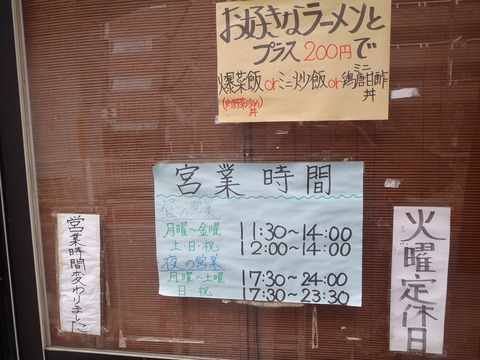 お好きなラーメンと
プラス200円で
爆菜飯orミニ炒飯orミニ鶏唐甘酢丼
(肉野菜炒め丼)
宮業時間
昼の営業
月曜~金曜 11:30~14:00
土・日・祝 12:00~14:00
夜の営業
月曜~土曜 17:30~24:00
日 祝 17:30~23:30
営業時間変わりました
火曜定休日